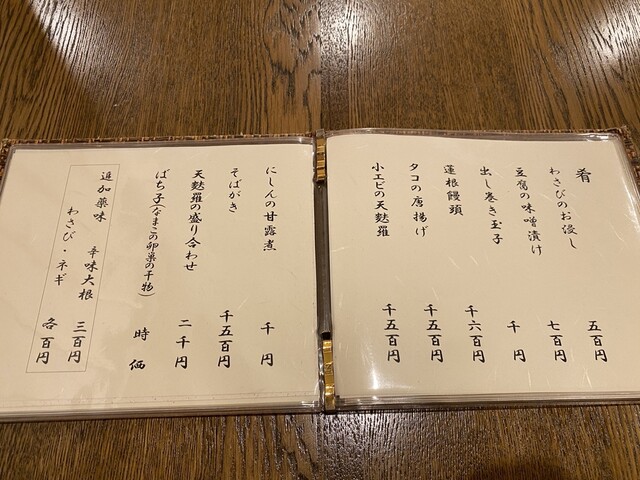 肴
わさびのお浸し 五百円
豆腐の味噌漬け 七百円
出し巻き玉子 千円
蓮根饅頭 千六百円
タコの唐揚げ 千五百円
小エビの天麩羅 千五百円
にしんの甘露煮 千円
そばがき 千五百円
天麩羅の盛り合わせ 二千円
ばち子(なまこの卵巣の干物) 時価
追加薬味 辛味大根 三百円
わさび・ネギ 各百円